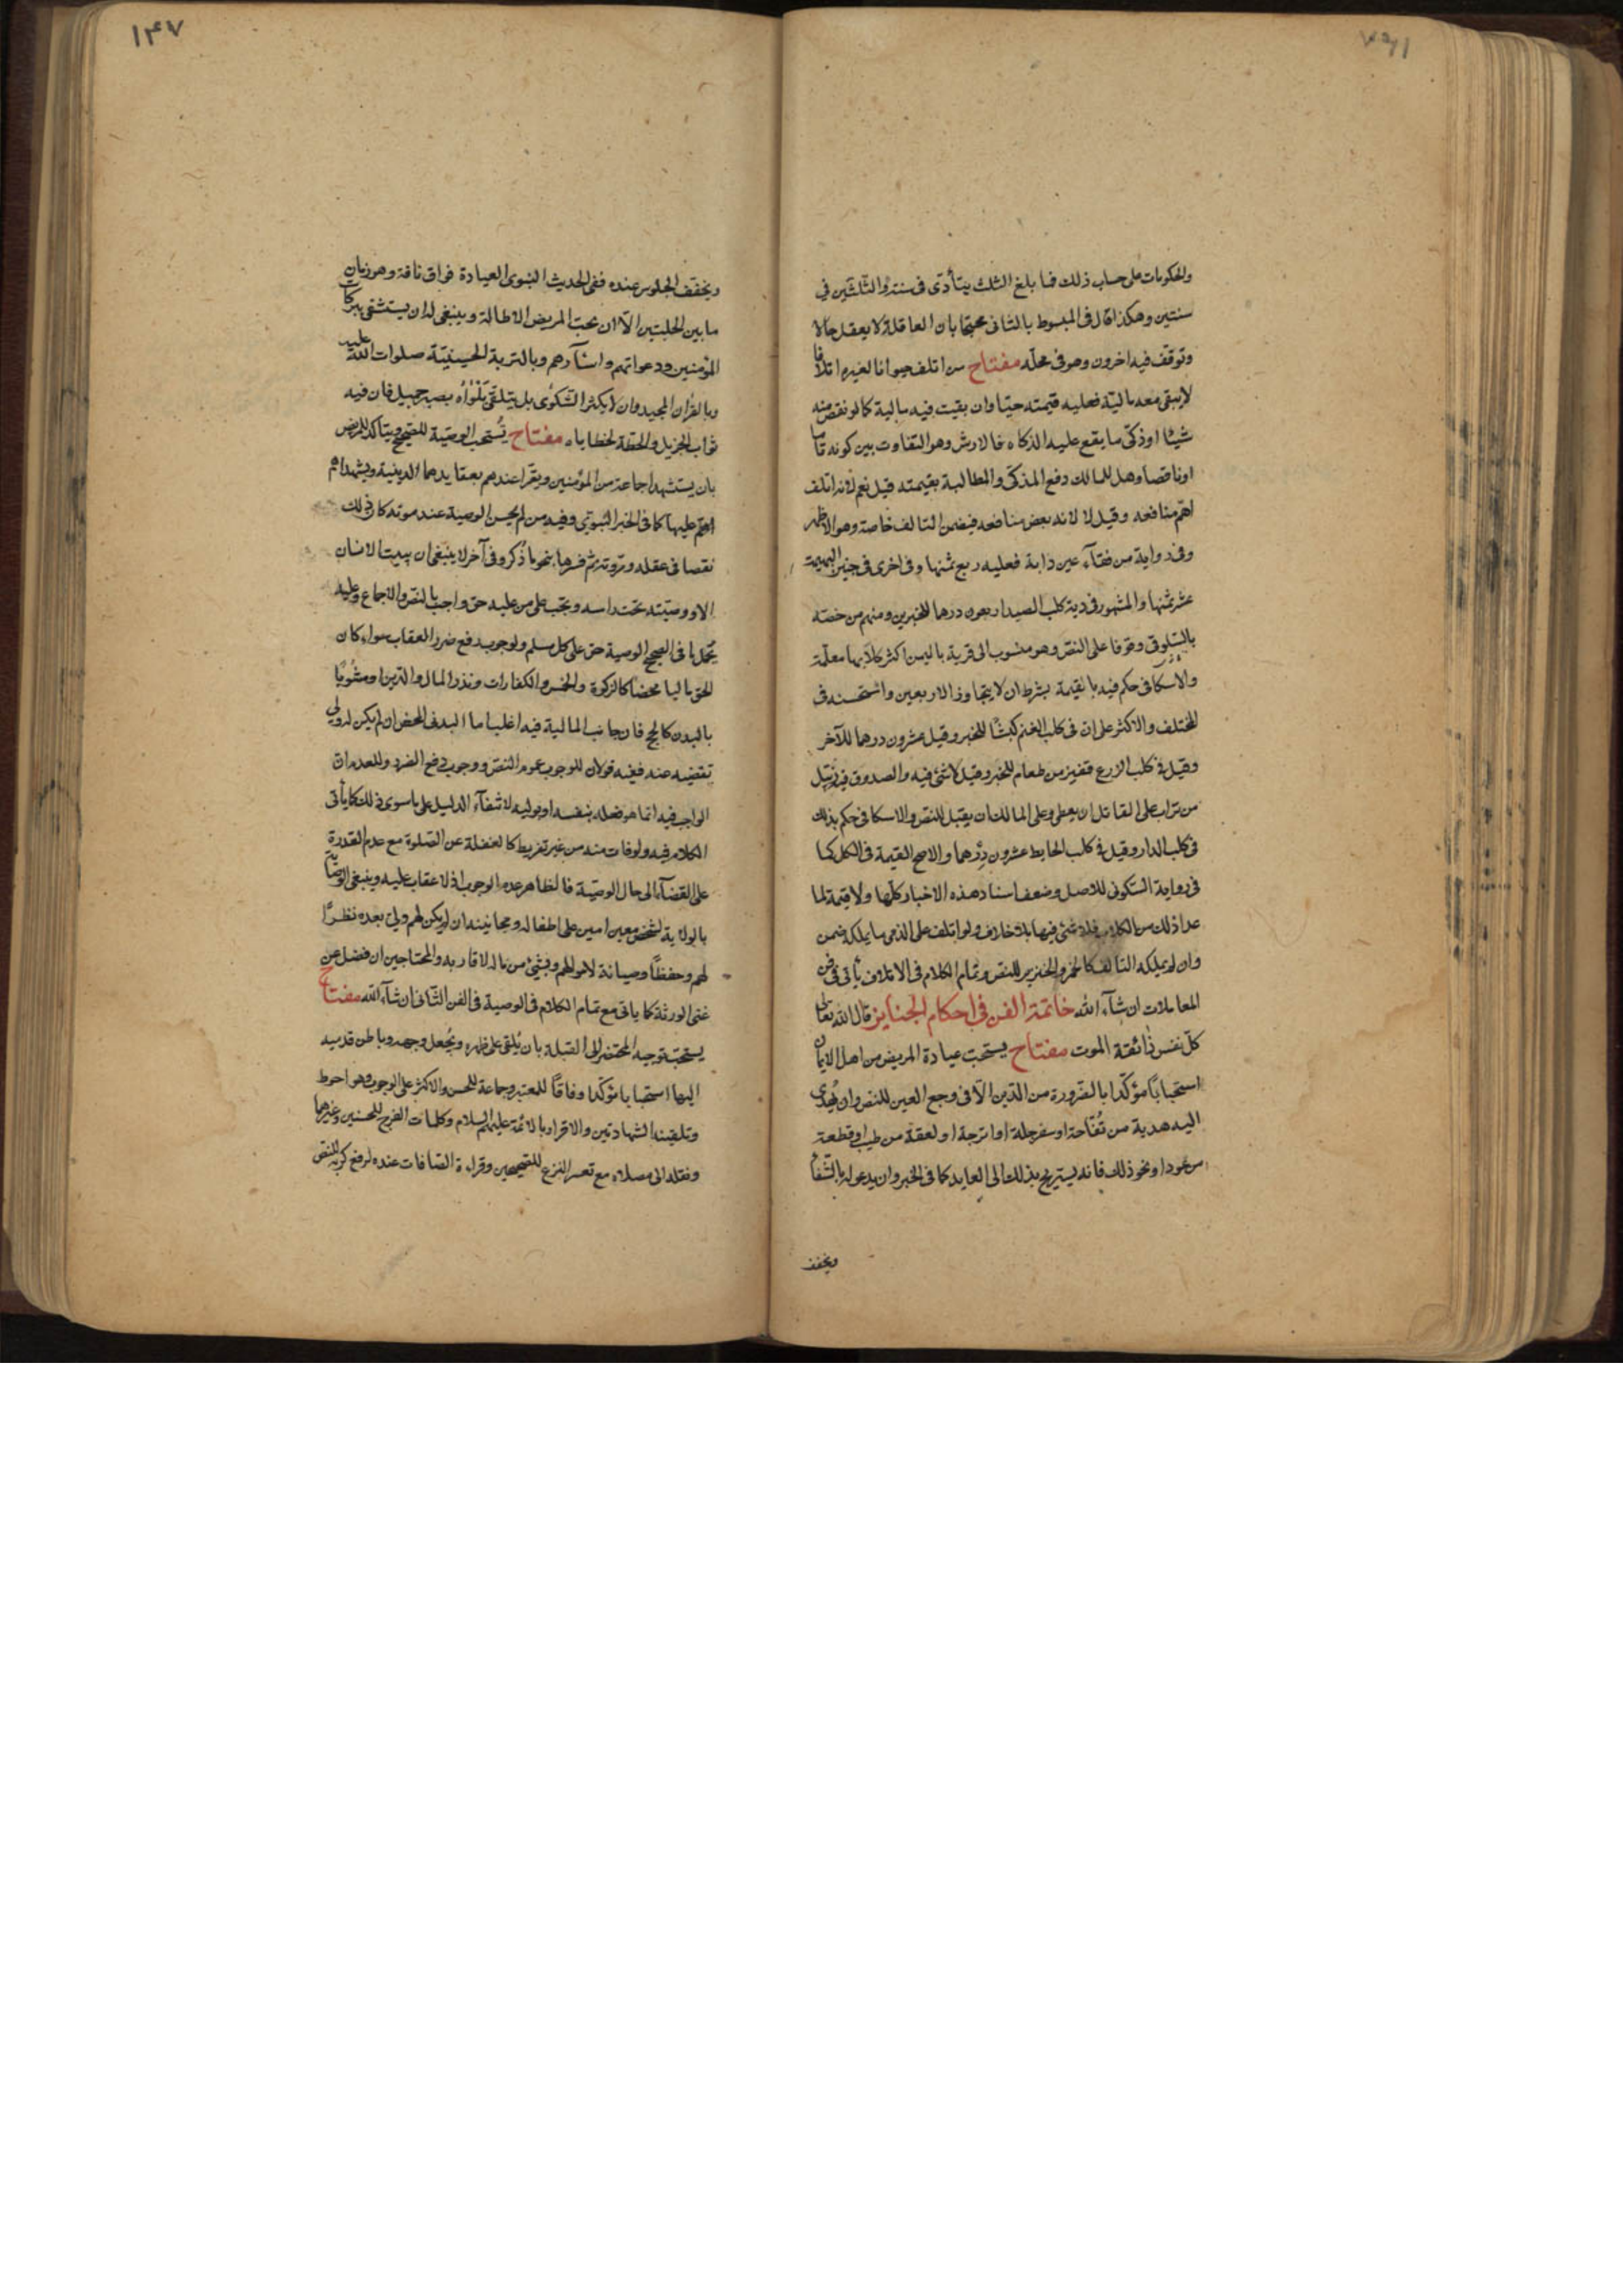 والحكومات على حساب ذلك فما بلغ الثلث يتأدى فى سنة والثلثين في
سنتين وهكذا قال فى المبسوط بالثانى محتجا بان العاقلة لا يعقل حالا
وتوقف فيه اخرون وهو فى محله مفتاح من اتلف حيوانا لغيره اتلافا
لا يبقى معه مالية فعليه قيمته حيا وان بقيت فيه مالية كما لو نقص منه
شيئا او ذكى ما يقع عليه الذكاه فالارش وهو التفاوت بين كونه تاما
او ناقصا وهل للمالك دفع المذكى والمطالبة بقيمته قيل نعم لانه اتلف
اهم منافعه وقيل لا لانه بعض منافعه فيضمن التالف خاصة وهو الاظهر
وفى رواية من فقأ عين دابة فعليه ربع ثمنها وفى اخرى فى جنين البهيمة
عشر ثمنها والمشهور فى دية كلب الصيد اربعون درهما للخبرين ومنهم من خصته
بالسلوقى وقوفا على النص وهو منسوب الى قرية باليمن اكثر كلابها معلمة
والاسكافى حكم فيه بالقيمة بشرط ان لا يتجاوز الاربعين واستحسنه فى
المختلف والاكثر على ان فى كلب الغنم كبشا للخبر وقيل عشرون درهما للآخر
وقيل فى كلب الزرع قفيز من طعام للخبر وقيل لا شئ فيه والصدوق فيه زنبيل
من تراب على القاتل ان يعطى وعلى المالك ان يقبل للنص والاسكافى حكم بذلك
فى كلب الدار وقيل فى كلب الحايط عشرون درهما والاصح القيمة فى الكل كما
فى رواية السكونى للاصل وضعف اسناد هذه الاخبار كلها ولا قيمة لما
عدا ذلك من الكلاب فلا شئ فيها بلا خلاف ولو اتلف على الذمى ما يملكه ضمن
وان لم يملكه التالف كالخمر والخنزير للنص وتمام الكلام فى الاتلاف يأتى فى فن
المعاملات ان شآء الله خاتمة الفن فى احكام الجنايز قال الله تعالى
كل نفس ذائقة الموت مفتاح يستحب عيادة المريض من اهل الايمان
استحبابا مؤكدا بالضرورة من الدين الا فى وجع العين للنص وان يهدى
اليه هدية من تفاحة او سفرجلة او اترجة او لعقة من طيب او قطعة
من عود او نحو ذلك فانه يستريح بذلك الى العايد كما فى الخبر وان يدعو له بالشفا
ويخفف
١٤٧
ويخفف الجلوس عنده ففى الحديث النبوى العيادة فواق ناقة وهو زمان
ما بين الحلبتين الا ان يحب المريض الاطالة وينبغى له ان يستشفى ببركات
المؤمنين ودعواتهم واسآرهم وبالتربة الحسينية صلوات الله عليه
وبالقران المجيد وان لا يكثر الشكوى بل يتلقى بلواه بصبر جميل فان فيه
ثواب الجزيل والحطة لخطاياه مفتاح يستحب الوصية للصحيح ويتاكد للمريض
بان يستشهد جاعة من المؤمنين ويقرا عندهم بعقايدهما الدينية ويشهداهم
عليها كما فى الخبر النبوي وفيه من لم يحسن الوصية عند موته كان ذلك
نقصا فى عقله ومروته ثم فسرها بنحو ما ذكر وفى آخر لا ينبغى ان يبيت الانسان
الا ووصيته تحت راسه وتجب على من عليه حق واجب بالنص والاجماع وعليه
يحمل ما فى الصحيح الوصية حق على كل مسلم ولوجوب دفع ضرر العقاب سواء كان
الحق ماليا محضا كالزكوة والخمس والكفارات ونذر المال والدين او مشوبا
بالبدن كالحج فان جانب المالية فيه اغلب اما البدنى المحض ان لم يكن له ولي
تقضيه عنه ففيه قولان للوجوب عموم النص ووجوب دفع الضرر وللعدم ان
الواجب فيه انما هو فعله بنفسه او بوليه لانتفآء الدليل على ما سوى ذلك كما يأتى
الكلام فيه ولو فات منه من غير تفريط كالغفلة عن الصلوة مع عدم القدرة
على القضآء الى حال الوصية فالظاهر عدم الوجوب اذ لا عقاب عليه وينبغى الوصاية
بالولاية لشخص معين امين على اطفاله ومجانينه ان لم يكن لهم ولى بعده نظرا
لهم وحفظا وصيانة لاموالهم وبشئ من ماله لاقاربه والمحتاجين ان فضل عن
غنى الورثة كما ياتى مع تمام الكلام فى الوصية فى الفن الثانى ان شآء الله مفتاح
يستحب توجيه المحتضر الى القبلة بان يلقى على ظهره ويجعل وجهه وباطن قدميه
اليها استحبابا مؤكدا وفاقا للمعتبر وجماعة للحسن والاكثر على الوجوب وهو احوط
وتلقينه الشهادتين والاقرار بالائمة عليهم السلام وكلمات الفرج للحسنين وغيرهما
ونقله الى مصلاه مع تعسر النزع للصحيحين وقراءة الصافات عنده لرفع كربه للنص